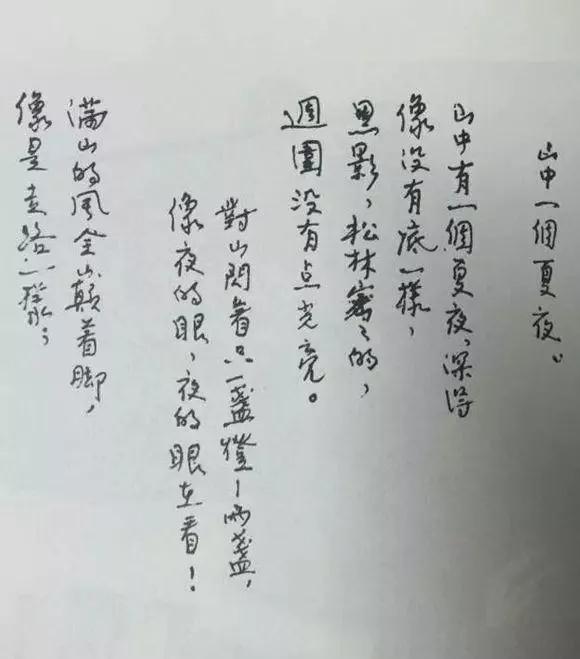 山中一個夏夜。
山中有一個夏夜，深得
像没有底一樣，
黑影，松林密密的，
週圍没有点光亮。
對山閃着只一盞燈—两盞，
像夜的眼，夜的眼在看！
满山的風全蹑着脚，
像是走路一樣；